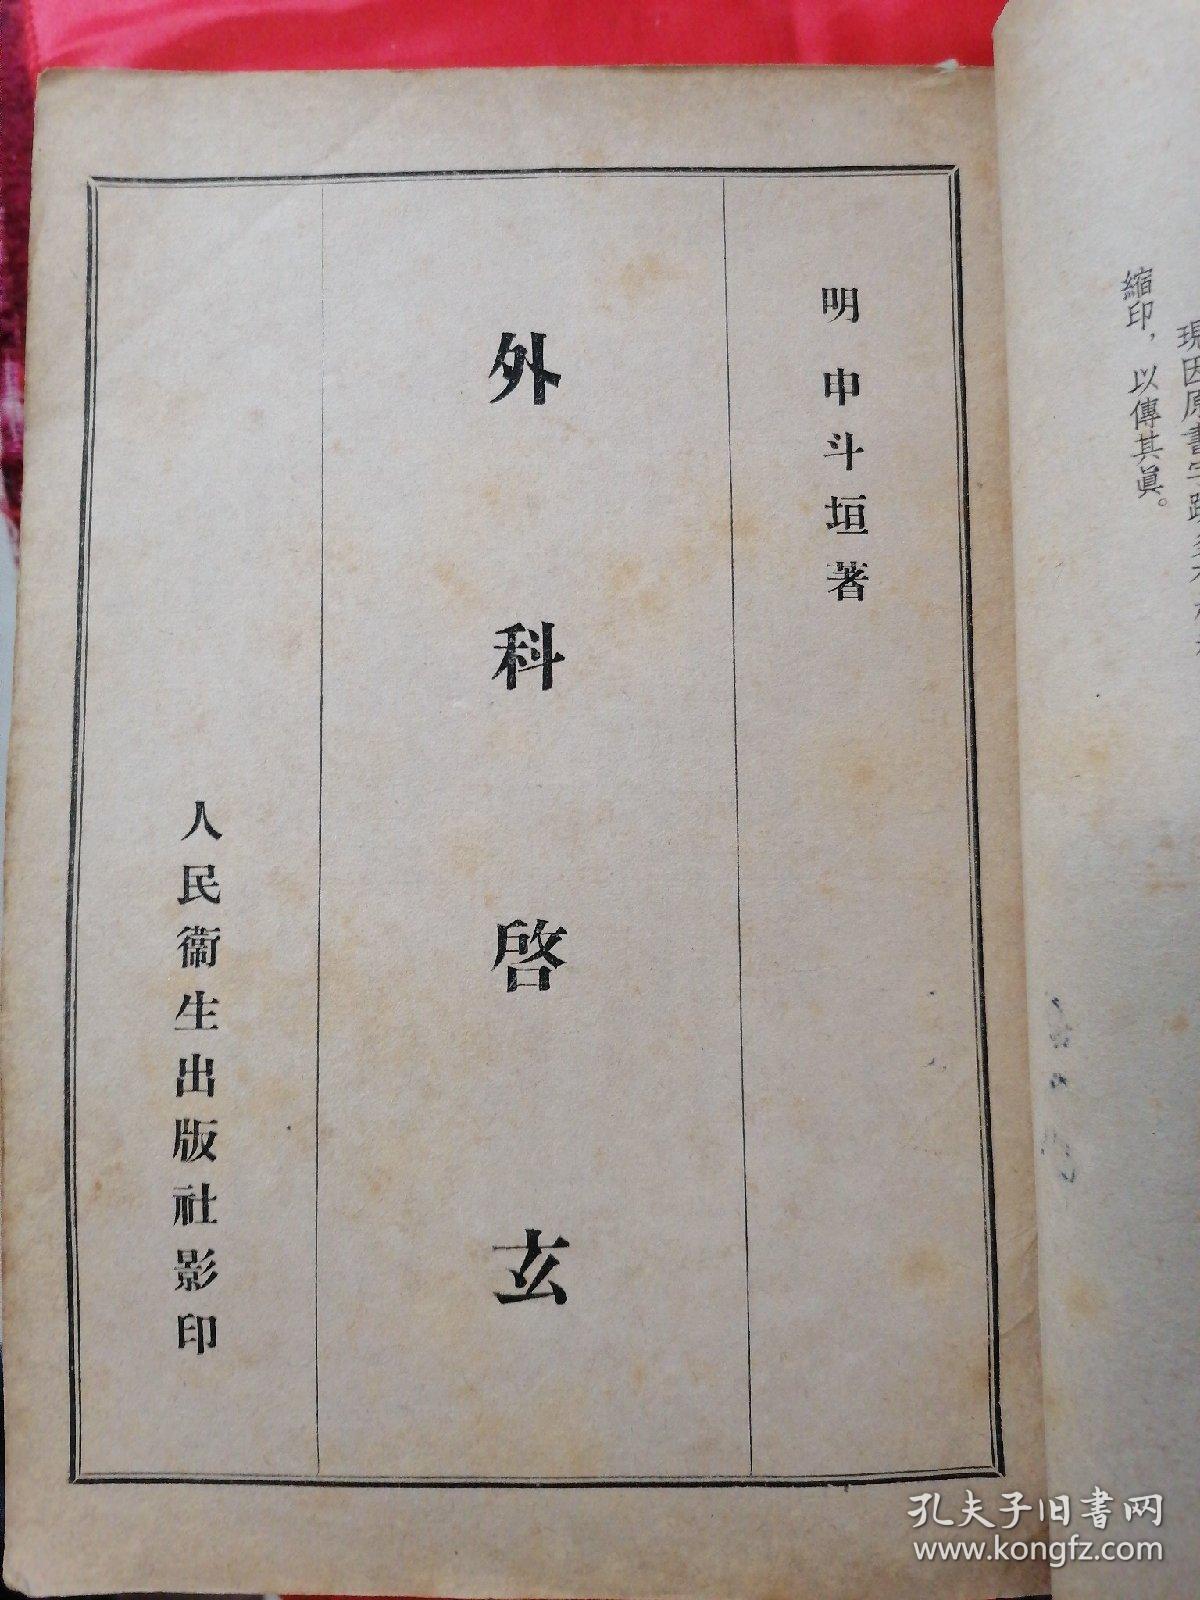 現因原書字跡
縮印，以傳其眞。
明 申斗垣著
外科啓玄
人民衞生出版社影印
孔夫子旧书网
www.kongfz.com